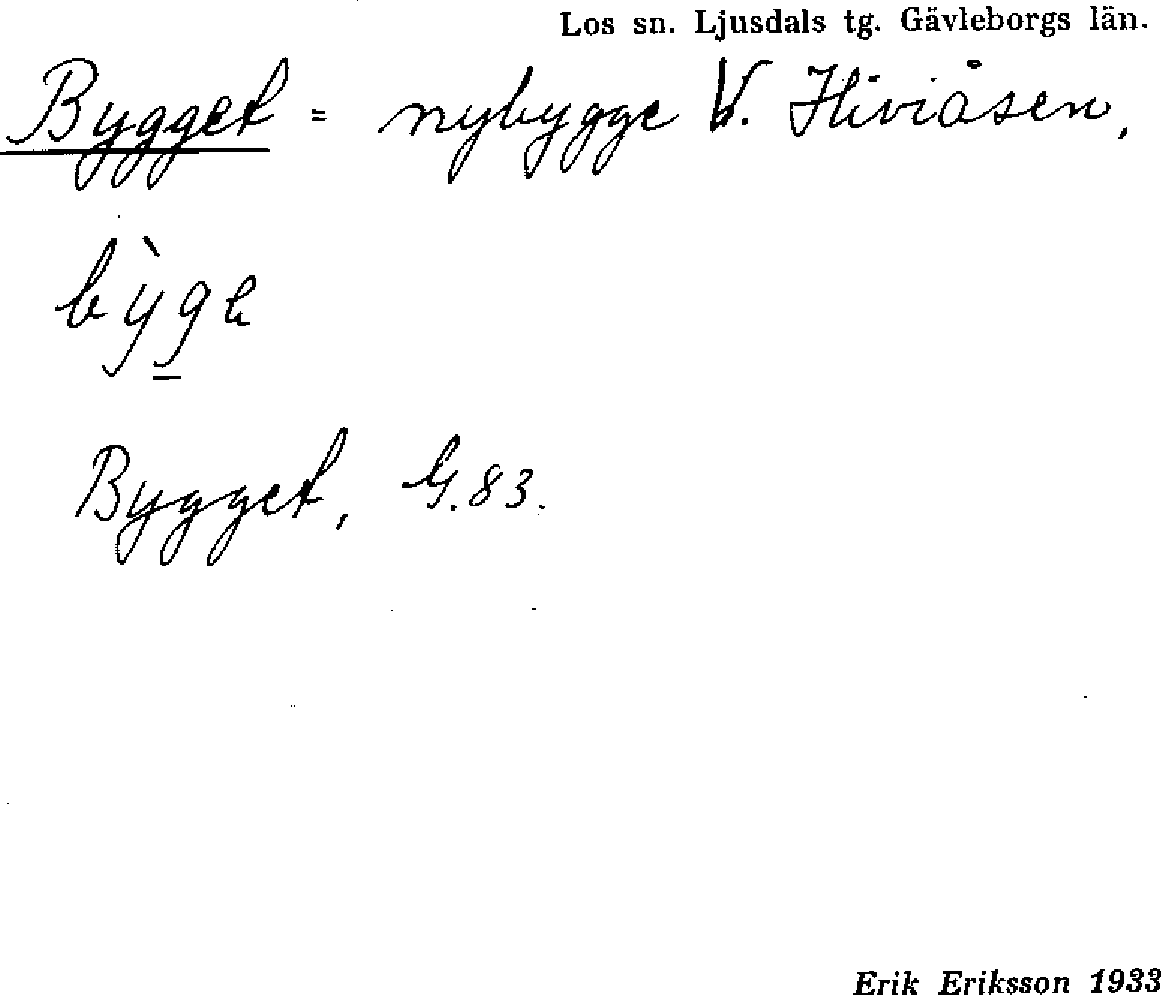 Los sn. Ljusdals tg. Gävleborgs län.
Bygget = nybygge V. Hiviåsen,
bỳge
Bygget, G. 83.
Erik Eriksson 1933